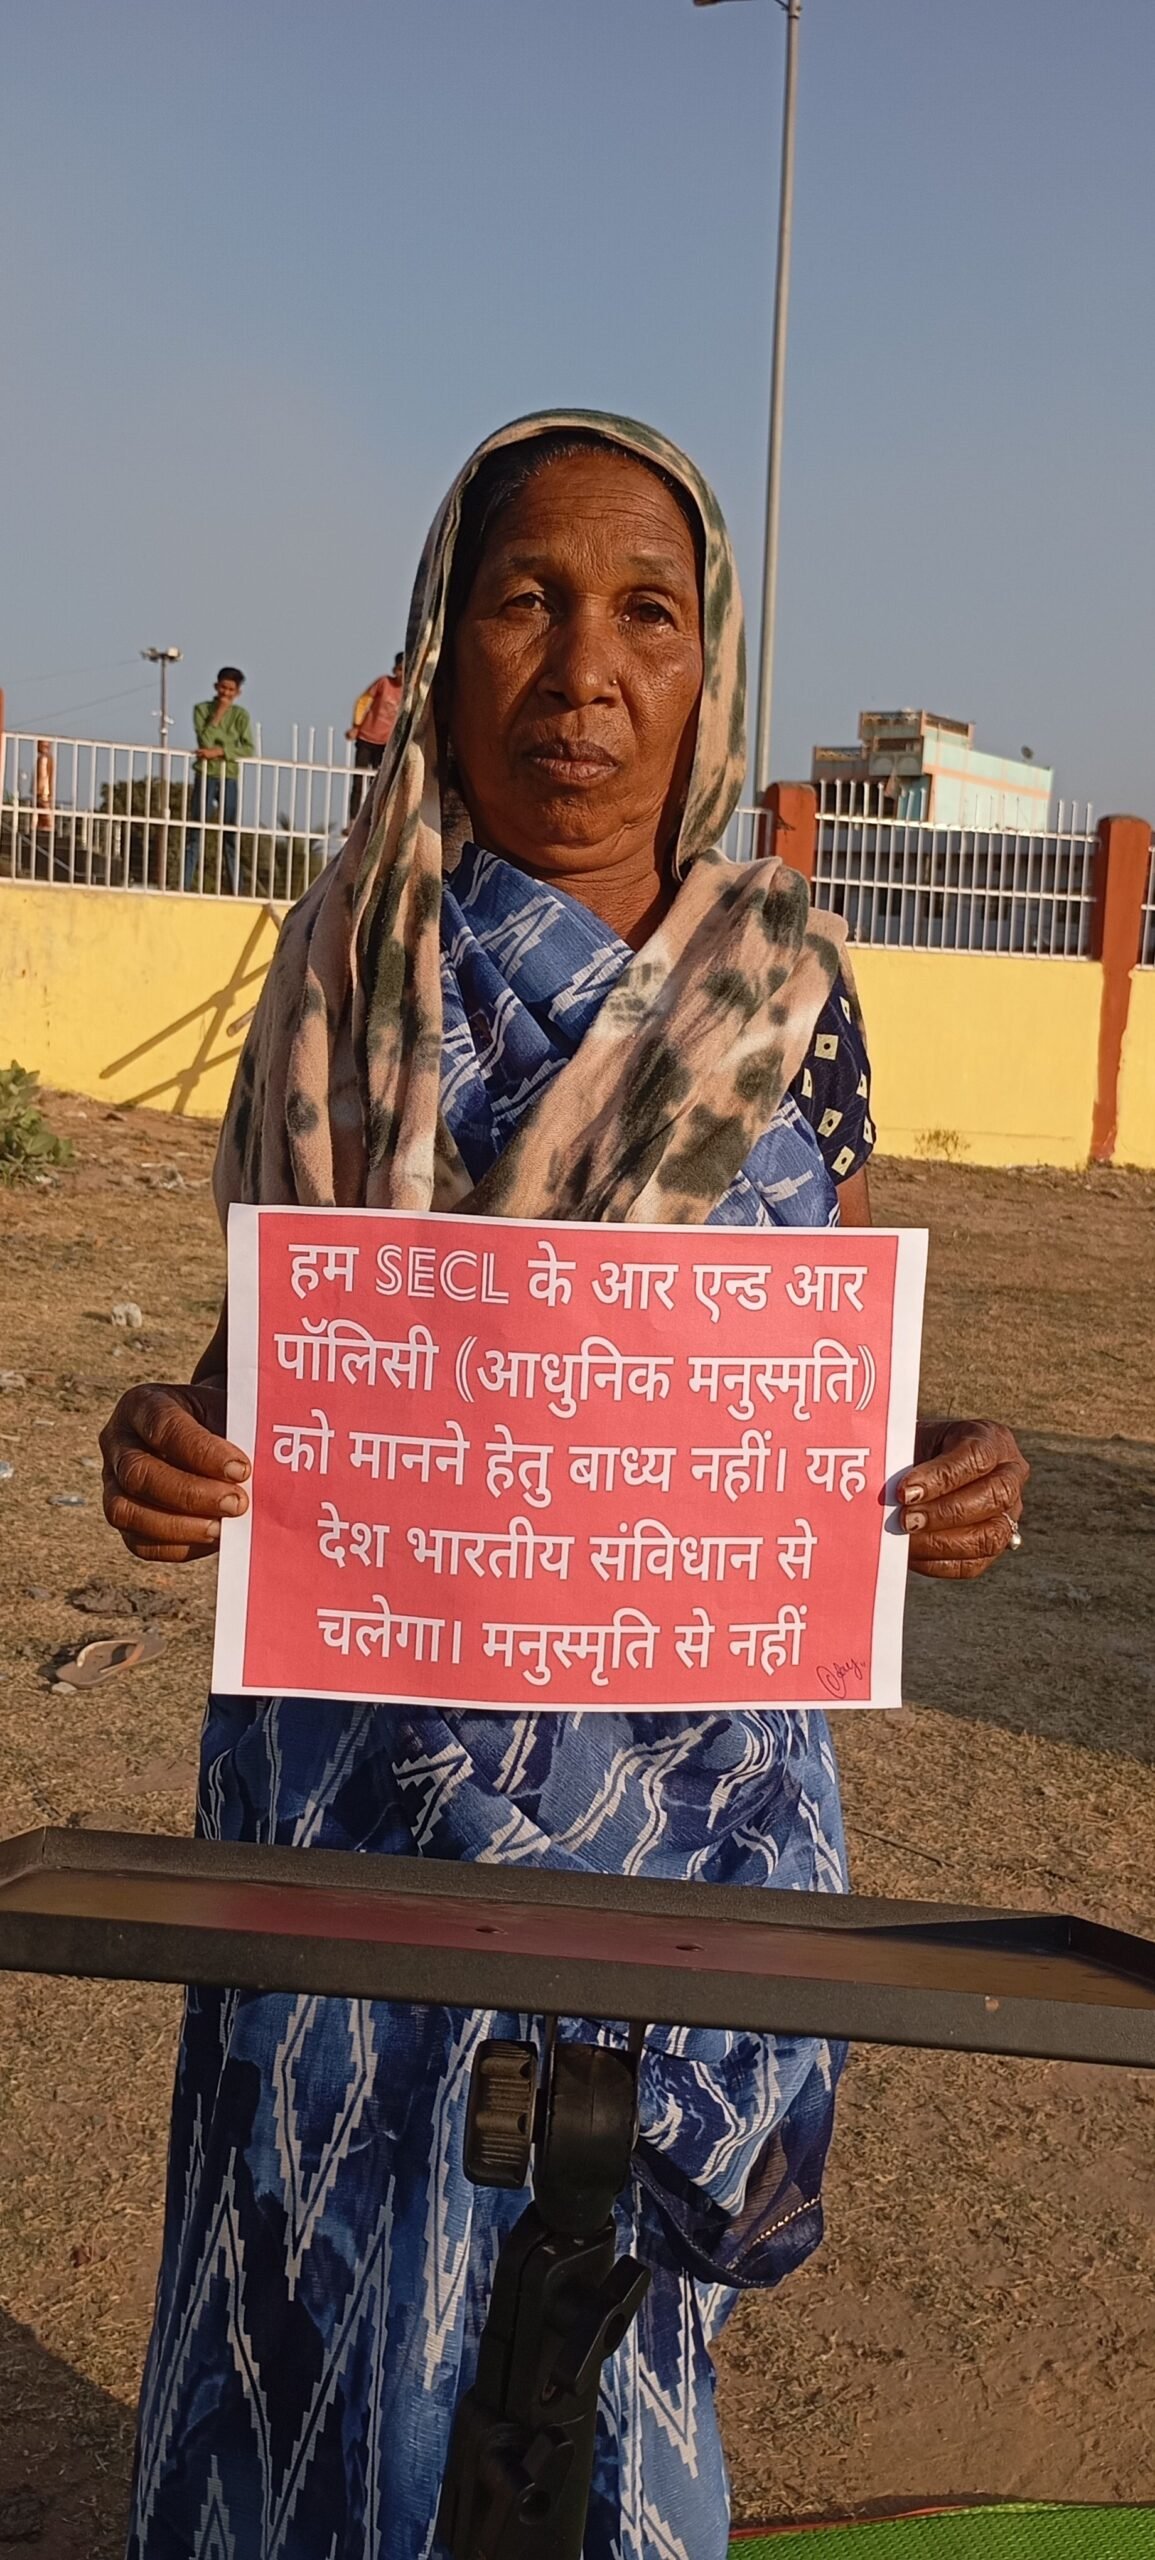 हम SECL के आर एन्ड आर
पॉलिसी ⟪आधुनिक मनुस्मृति⟫
को मानने हेतु बाध्य नहीं। यह
देश भारतीय संविधान से
चलेगा। मनुस्मृति से नहीं